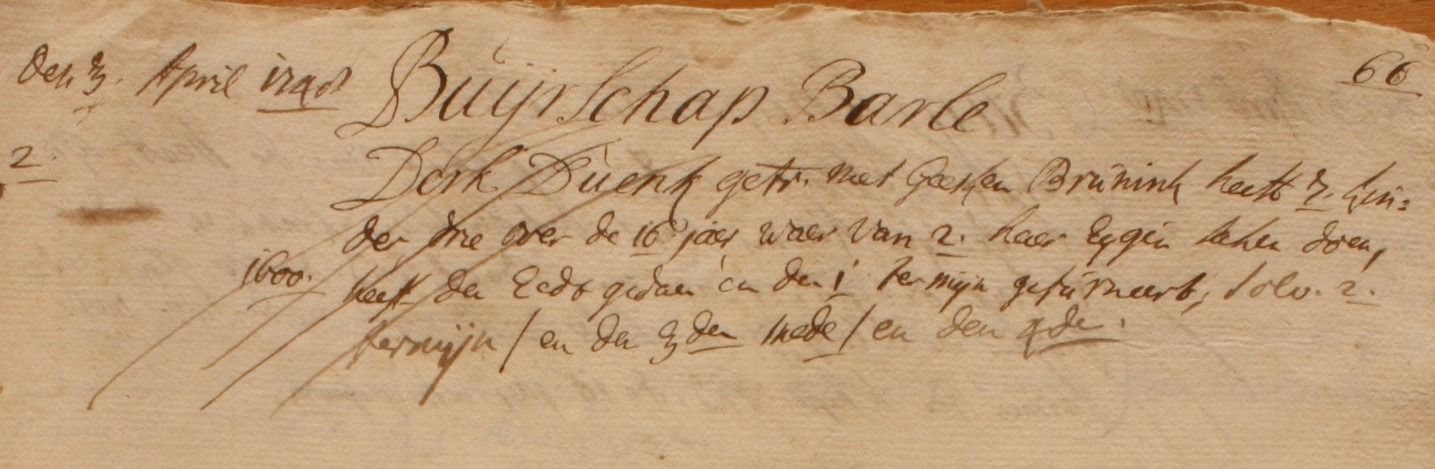 den 3. April 1748 Buijrschap Barle 66
2. Derk Duenk getr. met Geesken Brünink heeft 7. kin=
der drie over de 16 jaer waer van 2. haer Eygen saken doen,
1600. heeft den Eedt gedaen en den 1 termijn gefurneert, solv. 2.
termijn / en den 3den mede / en den 4de.